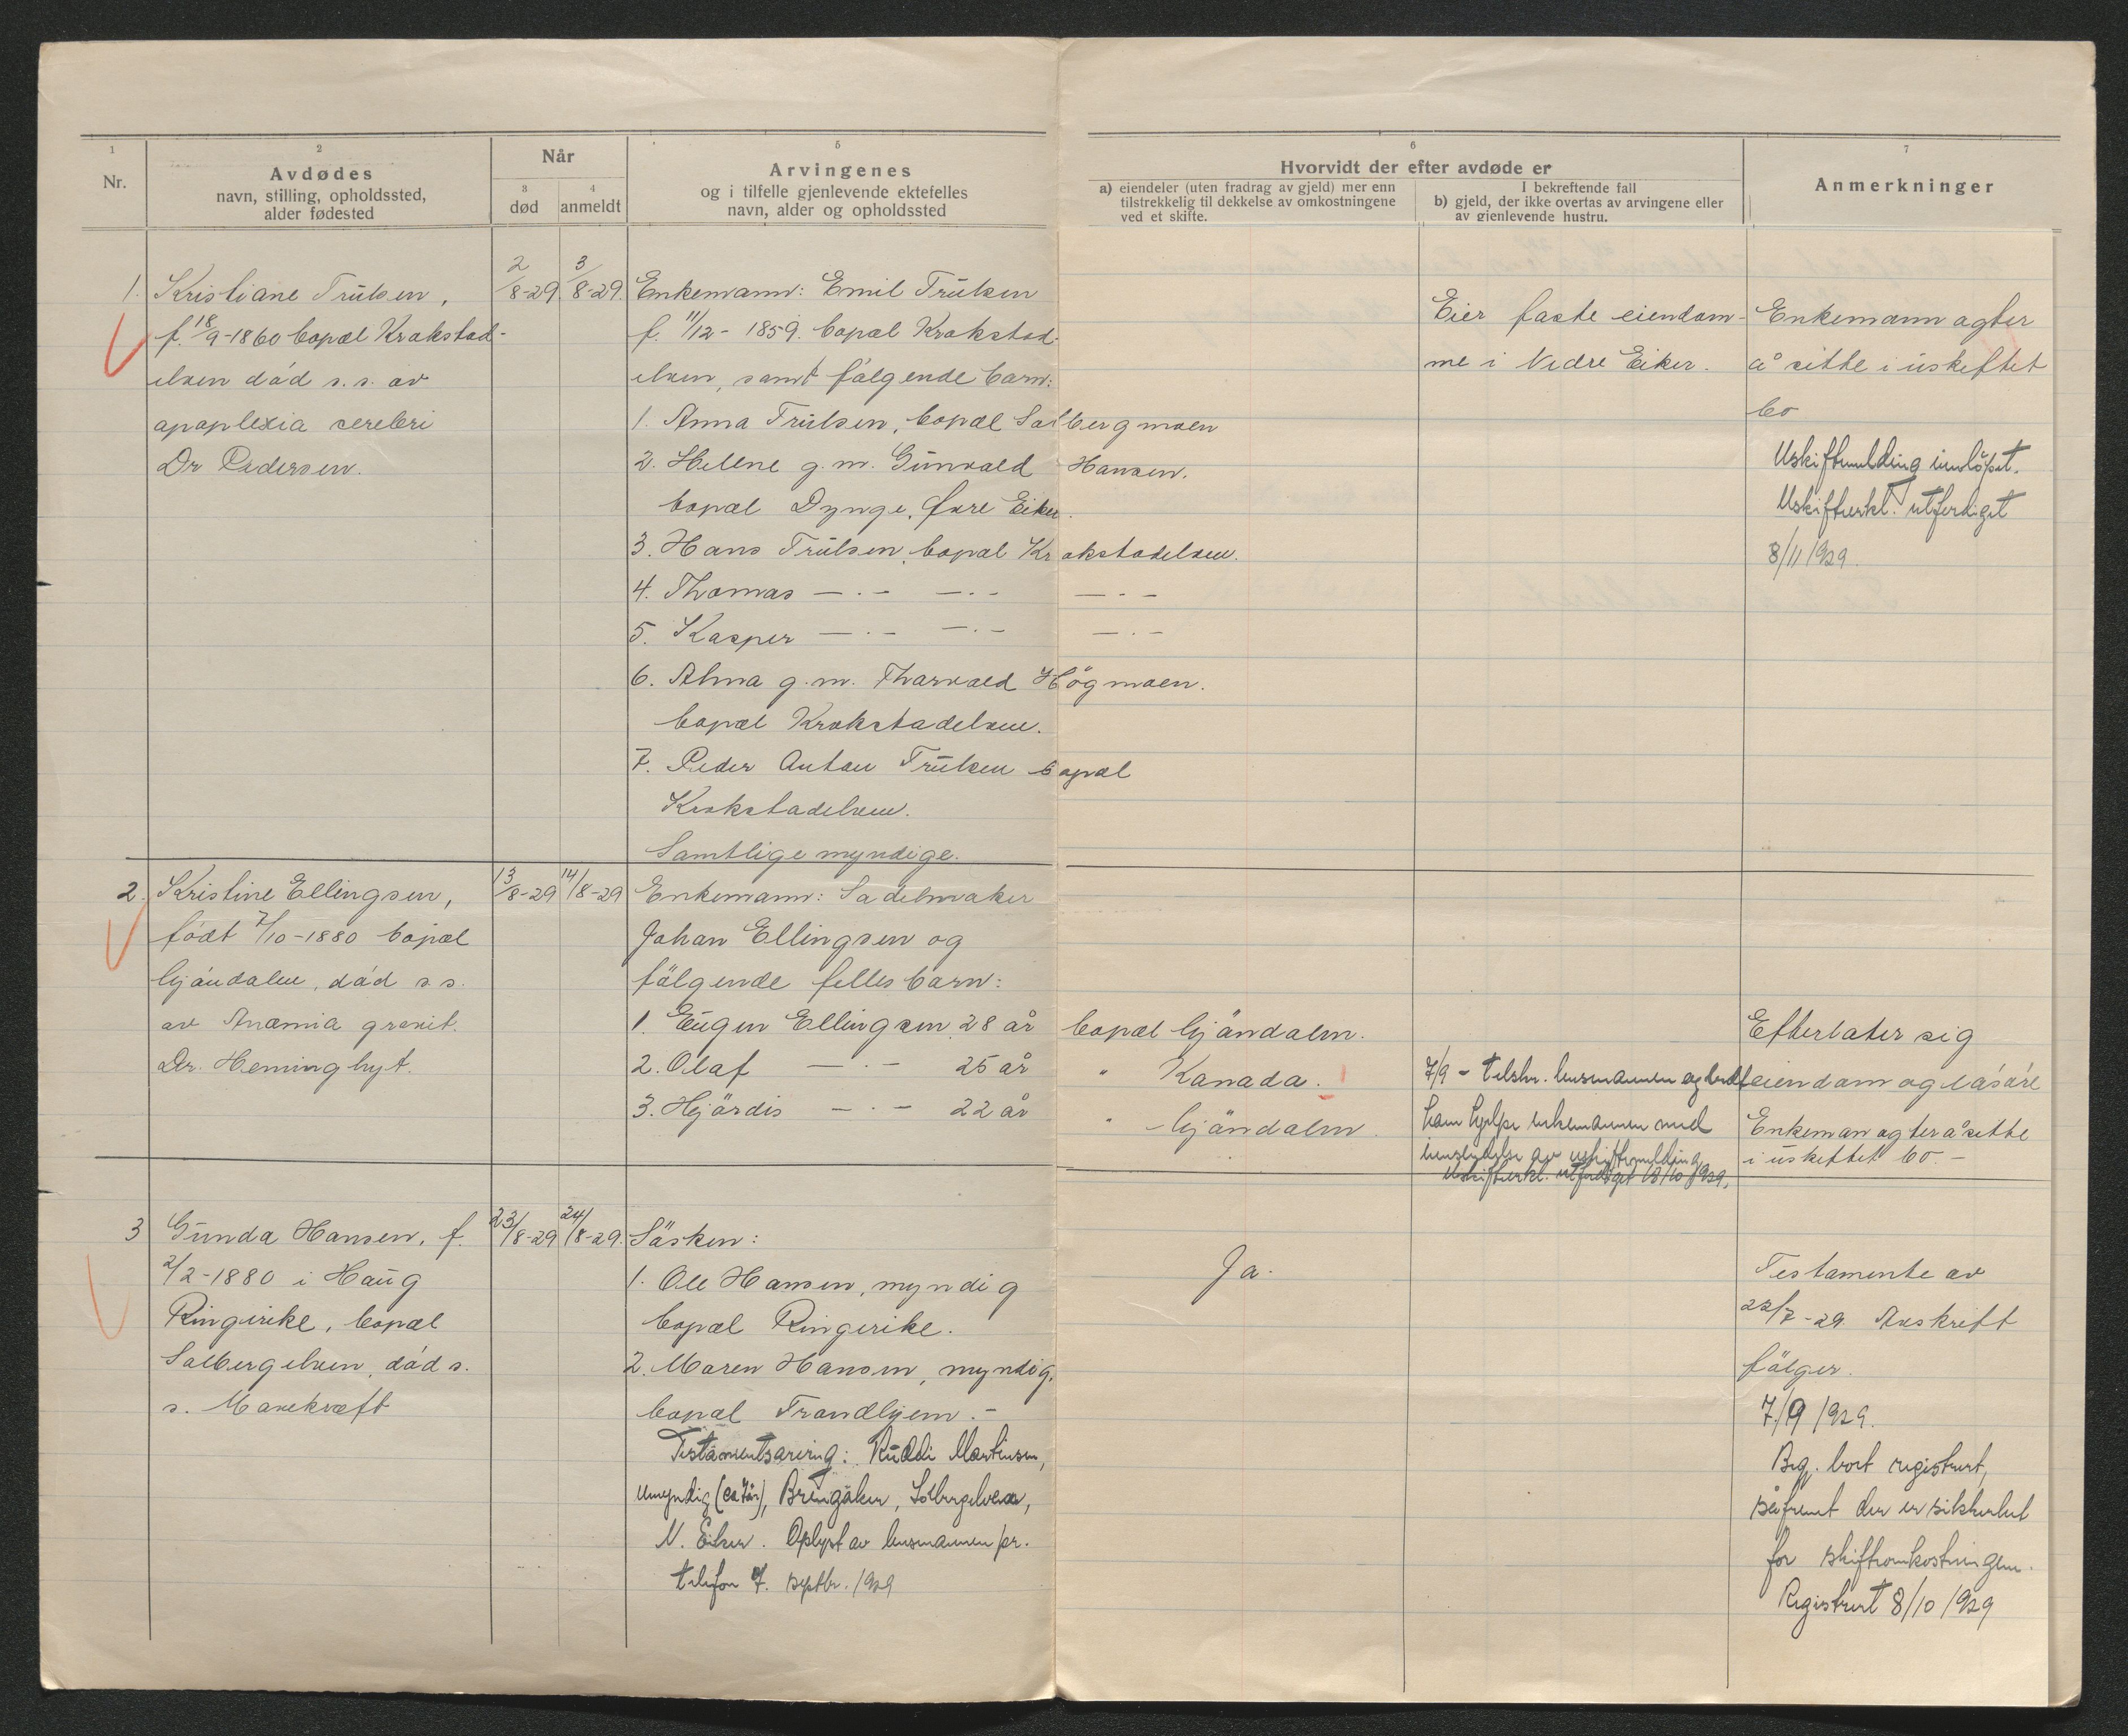 1
Nr.
2
Avdødes
navn, stilling, opholdssted,
alder fødested
Når
3
død
4
anmeldt
5
Arvingenes
og i tilfelle gjenlevende ektefelles
navn, alder og opholdssted
6
Hvorvidt der efter avdøde er
a) eiendeler (uten fradrag av gjeld) mer enn
tilstrekkelig til dekkelse av omkostningene
ved et skifte.
I bekreftende fall
b) gjeld, der ikke overtas av arvingene eller
av gjenlevende hustru.
7
Anmerkninger
1. Kristiane Trulsen,
f. 18/9-1860 bopæl Krokstad-
elven död s. s. av
apoplexia cerebri
Dr Pedersen.
2/8-29
3/8-29.
Enkemann: Emil Trulsen
f. 11/12-1859. bopæl Krokstad-
elven, samt følgende barn:
1. Anna Trulsen, bopæl Solbergmoen
2. Hellne g. m. Gunvald Hansen.
bopæl Dynge, Øvre Eiker.
3. Hans Trulsen, bopæl Krokstadelven.
4. Thomas — . — — . — — . —
5. Kasper — . — — . — — . —
6. Alma g. m. Thorvald Högmoen.
bopæl Krokstadelven.
7. Peder Anton Trulsen bopæl
Krokstadelven.
Samtlige myndige.
Eier faste eiendom-
me i Nedre Eiker.
Enkemann agter
å sitte i uskiftet
bo
Uskiftemelding innløpet.
Uskifteerkl. utferdiget
8/11 1929.
2. Kristine Ellingsen,
födt 7/10-1880 bopæl
Gjöndalen, död s. s.
av Anæmia gravit.
Dr. Heminghyt.
13/8-29
14/8-29
Enkemann: Sadelmaker
Johan Ellingsen og
fölgende felles barn:
1. Eugen Ellingsen 28 år bopæl Gjöndalen.
2. Olaf — . — 25 år " Kanada.
3. Hjördis — . — 22 år " Gjöndalen.
7/9 - tilskr. lensmannen og bedt
ham hjelpe enkemannen med
innsendelse av uskiftemelding
Uskifteerkl. utferdiget 18/10 1929.
Efterlater sig
eiendom og lösöre
Enkeman agter å sitte
i uskiftet bo. -
3 Gunda Hansen, f.
2/2-1880 i Haug
Ringerike, bopæl
Solbergelven, död s.
s. Mavekræft
23/8-29
24/8-29.
Søsken:
1. Ole Hansen, myndig
bopæl Ringerike.
2. Maren Hansen, myndig,
bopæl Trondhjem. -
Testamentsarving: Ruddi Martinsen,
umyndig (ca 7 år), Brengåker, Solbergelven,
N. Eiker. Oplyst av lensmannen pr.
telefon 7. septbr. 1929
Ja.
Testamente av
22/7-29 Avskrift
fölger.
7/9 1929.
Beg. bort registrert,
såfremt der er sikkerhet
for skifteomkostningene.
Registrert 8/10 1929